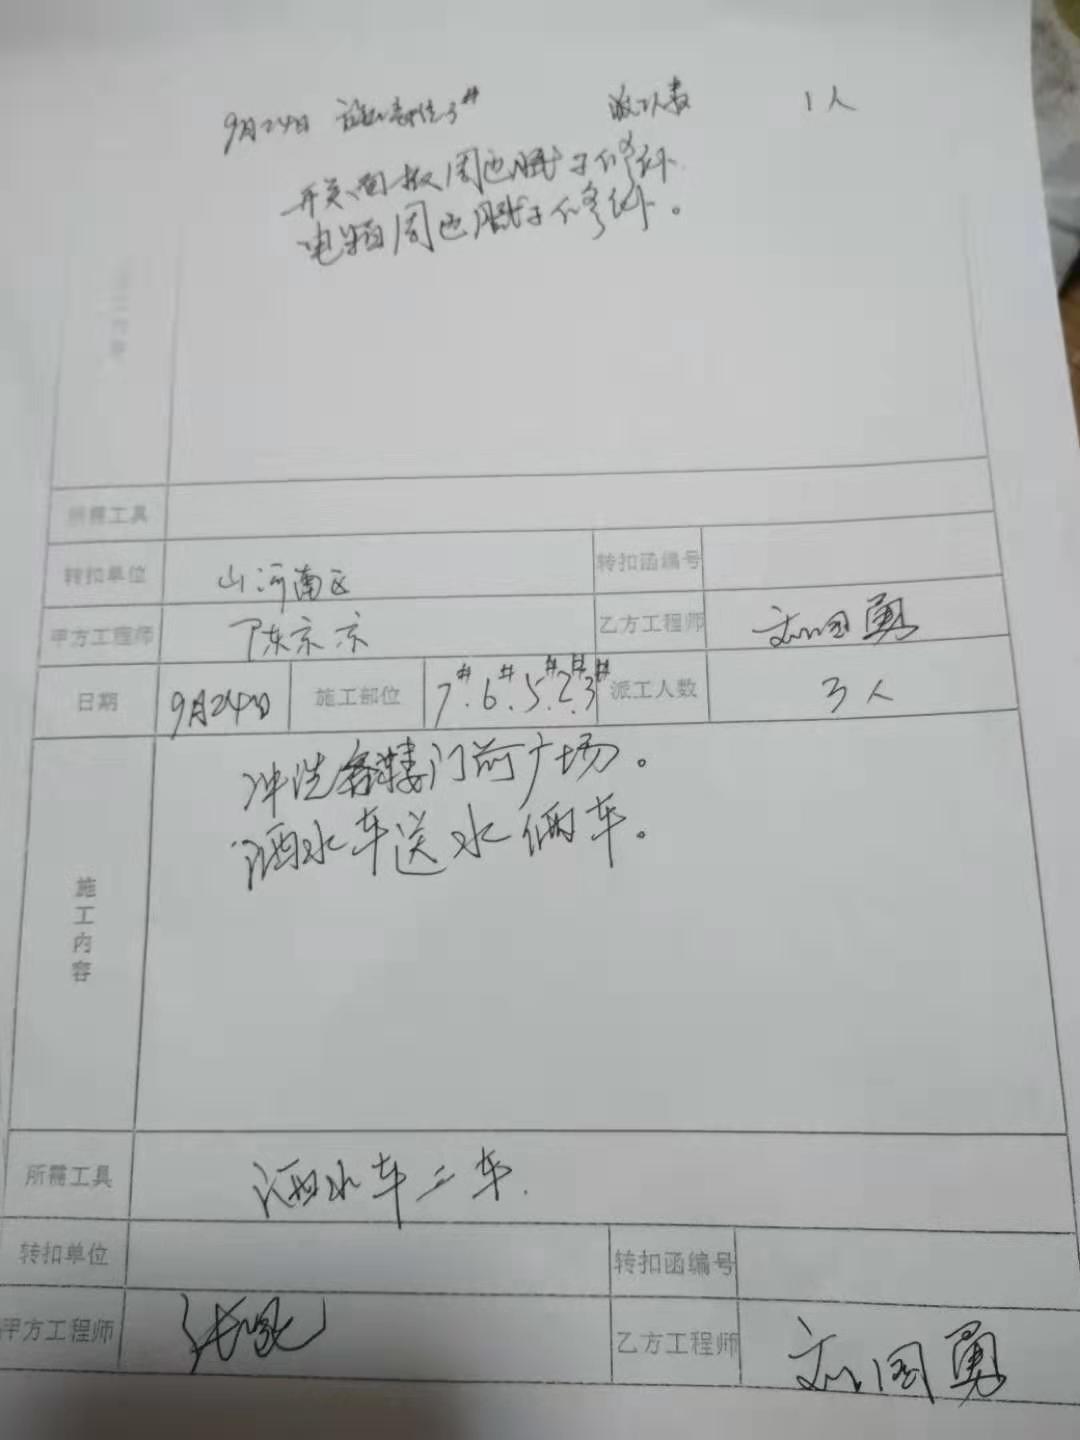 9月24日 施工部位3# 派工人数 1人
开关、面板周边腻子修补
电箱周边腻子修补。
施工内容
所需工具
转扣单位 山河南区 转扣函编号
甲方工程师 陈京京 乙方工程师 刘国勇
日期 9月24日 施工部位 7#.6#.5#.2#.3# 派工人数 3人
施工内容
冲洗各楼门前广场。
洒水车送水俩车。
所需工具 洒水车二车.
转扣单位 转扣函编号
甲方工程师 乙方工程师 刘国勇